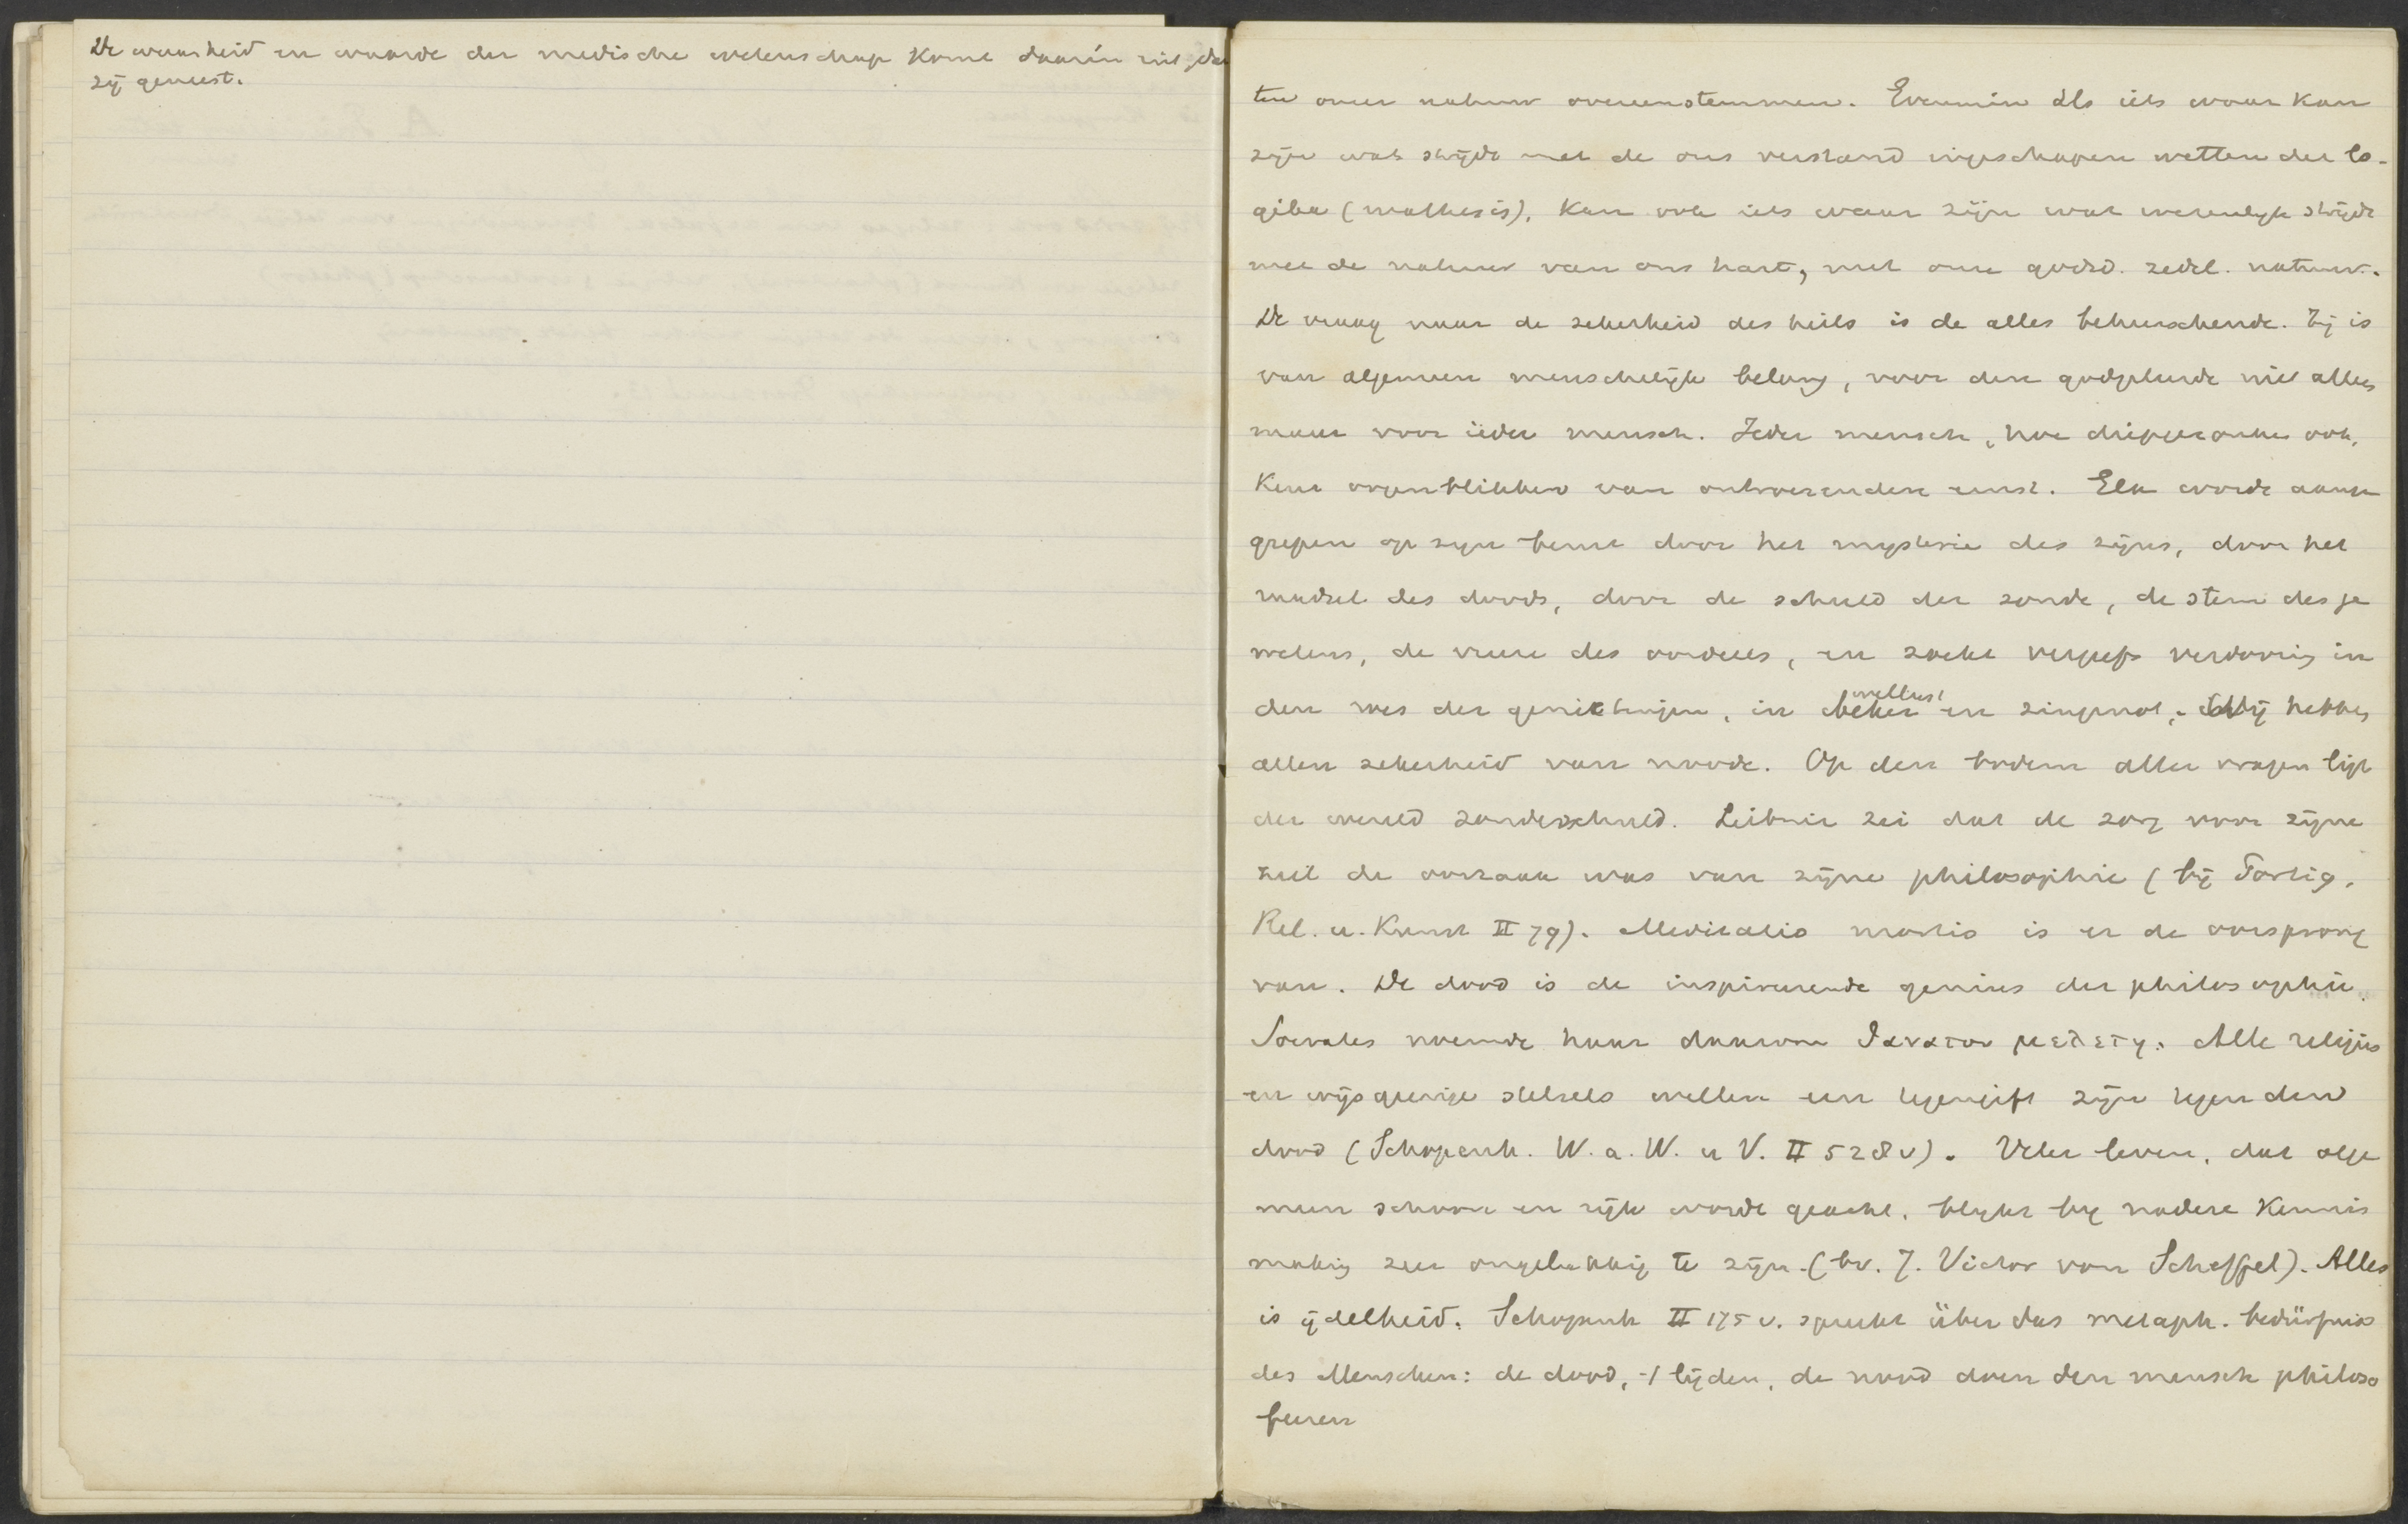 De waarheid en waarde der medische wetenschap komt daarin uit, dat
zij geneest.
ten onzer natuur overeenstemmen. Evenmin als iets waar kan
zijn wat strijdt met de ons verstand ingeschapen wetten der lo-
gika (mathesis), kan ook iets waar zijn wat wezenlijk strijdt
met de natuur van ons hart, met onze godsd. zedel. natuur.
De vraag naar de zekerheid des heils is de alles beheerschende. Zij is
van algemeen menschelijk belang, voor den godgeleerde niet alleen
maar voor ieder mensch. Ieder mensch, hoe ook,
kent oogenblikken van ontroerenden ernst. Elk wordt aange
grepen op zijn beurt door het mysterie des zijns, door het
raadsel des doods, door de schuld der zonde, de stem des ge
wetens, de vreeze des oordeels, en zoekt vergeefs verdooving in
den roes der genietingen, in beker wellust en zingenot. Wij hebben
allen zekerheid van noode. Op den bodem aller vragen ligt
der wereld zondeschuld. Leibniz zei dat de zorg voor zijne
ziel de oorzaak was van zijne philosophie (bij Portig,
Rel. u. Kunst II 79). Meditatio mortis is er de oorsprong
van. De dood is de inspireerende genius der philosophie.
Socrates noemde haar daarom θανατου μελετη. Alle religies
en wijsgeerige stelsels willen een tegengift zijn tegen den
dood (Schopenh. W. a. W. u V. II 528v). Veler leven, dat alge
meen schoon en rijk wordt geacht, blijkt bij nadere kennis
making zeer ongelukkig te zijn (bv. J. Victor von Scheffel). Alles
is ijdelheid. Schopenh II 175 v. spreekt über das metaph. bedürfnis
des Menschen: de dood, 't lijden, de nood doen den mensch philoso
feeren